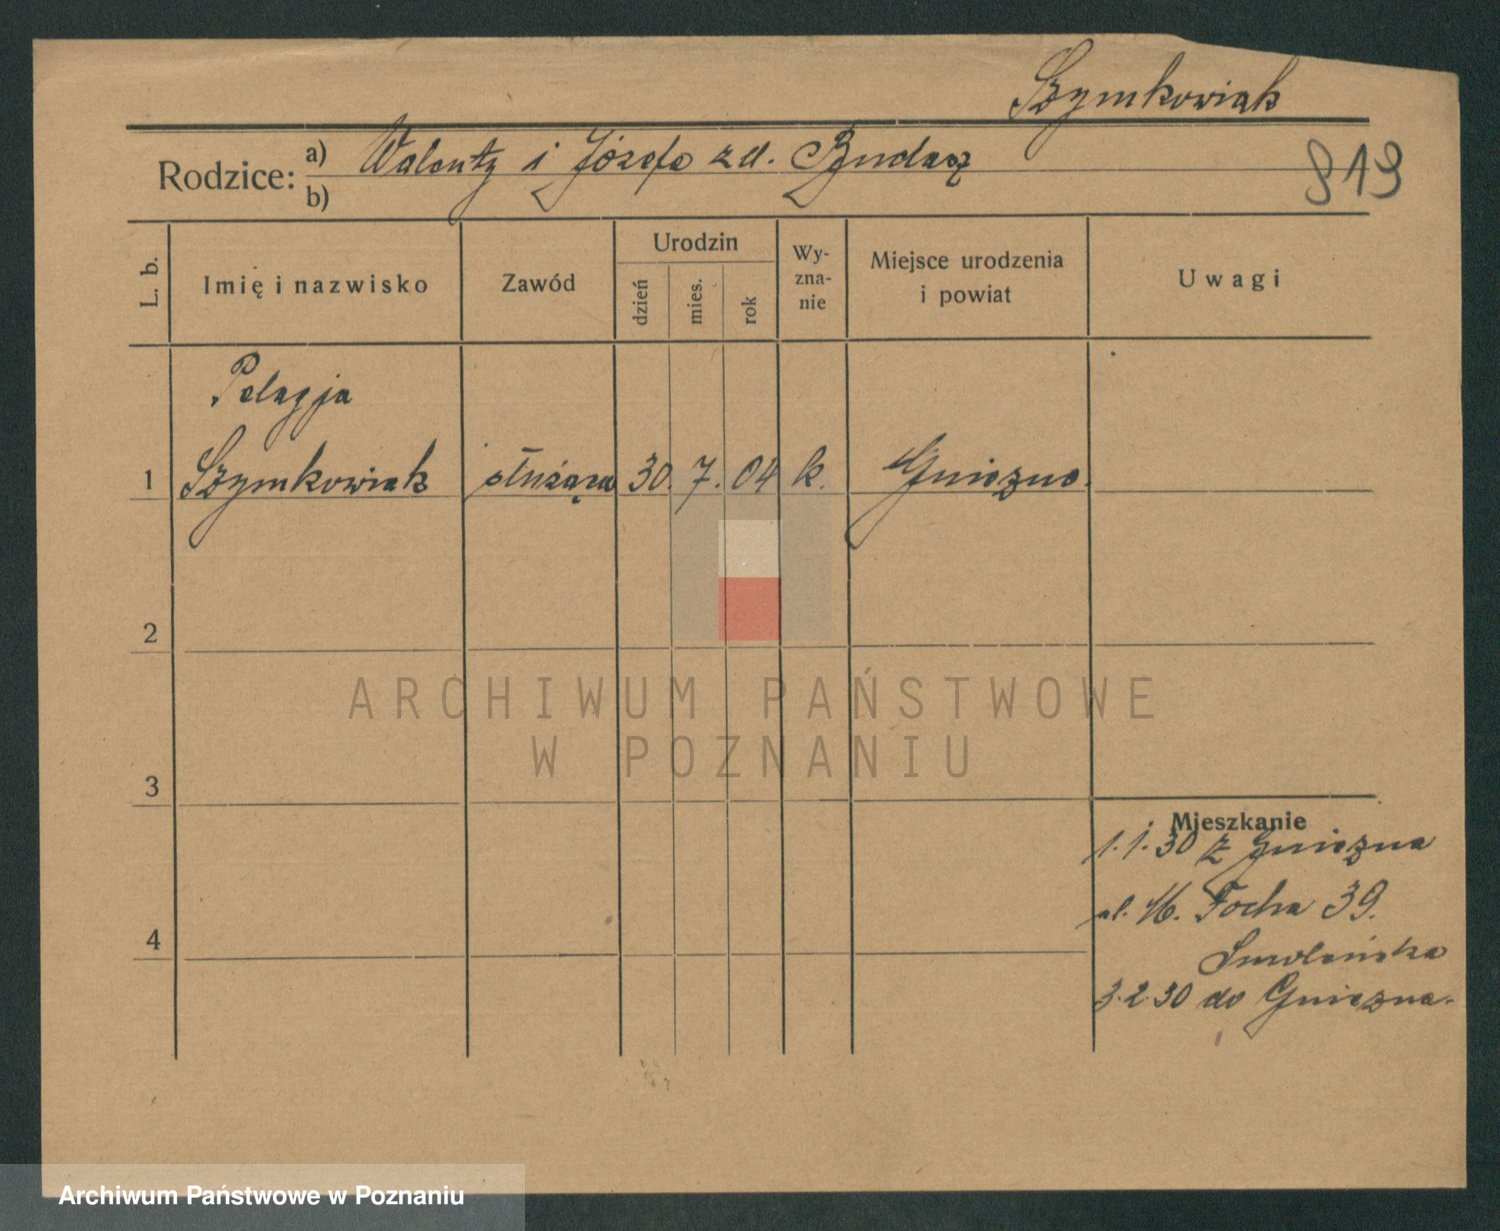 Szymkowiak
Rodzice: a) Walenty i Józefa zd. Budasz
b)
819
L. b.
Imię i nazwisko
Zawód
Urodzin
dzień
mies.
rok
Wy-
zna-
nie
Miejsce urodzenia
i powiat
Uwagi
Pelagja
1 Szymkowiak służąca 30. 7. 04 k. Gniezno.
2
ARCHIWUM PAŃSTWOWE
W POZNANIU
3
Mieszkanie
1.1.30 z Gniezna
ul. M. Focha 39.
4
Smoleńska
3.2.30 do Gniezna.
Archiwum Państwowe w Poznaniu